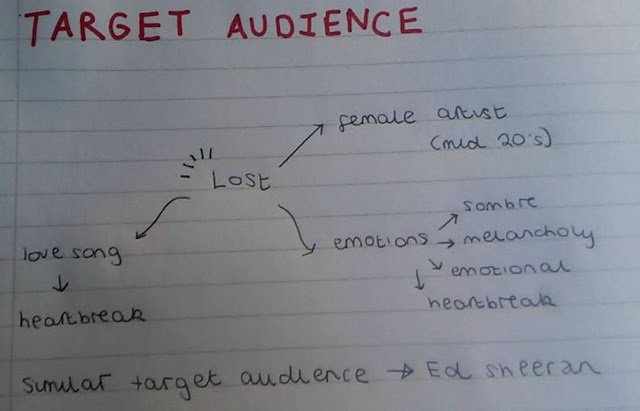 TARGET AUDIENCE
female artist
(mid 20's)
Lost
sombre
emotions
melancholy
love song
emotional
heartbreak
heartbreak
similar target audience → Ed sheeran